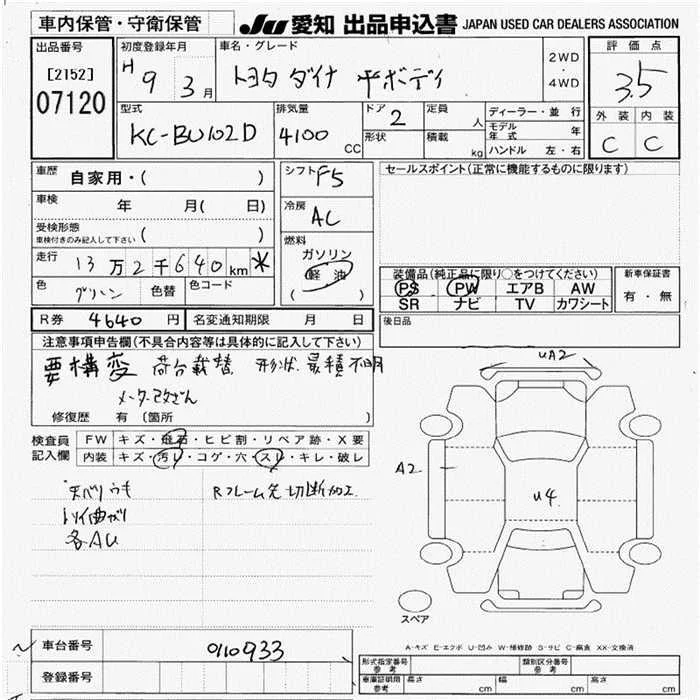 車内保管・守衛保管
JU 愛知 出品申込書 JAPAN USED CAR DEALERS ASSOCIATION
出品番号
[2152]
07120
初度登録年月
H 9 3月
車名・グレード
トヨタ ダイナ 平ボディ
2WD
・
4WD
評価点
3.5
外装 内装
C C
型式
KC-BU102D
排気量
4100
CC
ドア
2
定員
人
形状
積載
kg
ディーラー・並行
モデル年式 年
ハンドル 左・右
車歴
自家用・( )
車検
年 月( 日)
受検形態
車検付きのみ記入して下さい ( )
走行
13万2千640km *
色
グリーン
色替
色コード
シフト F5
冷房
AC
燃料
ガソリン
軽油
( )
R券 4640円
名変通知期限 月 日
セールスポイント(正常に機能するものに限ります)
装備品(純正品に限り○をつけてください)
PS PW エアB AW
SR ナビ TV カワシート
新車保証書
有・無
後日品
注意事項申告欄(不具合内容等は具体的に記入して下さい)
要構変 荷台載替 形状、最積不明
メーター改ざん
修復歴 有 〔箇所 〕
検査員
記入欄
FW キズ・飛石・ヒビ割・リペア跡・X要
内装 キズ・汚レ・コゲ・穴・スレ・キレ・破レ
天バリウキ
トリイ曲がり
各AU
Rフレーム先切断加工
UA2
A2
U4
スペア
A-キズ E-エクボ U-凹み W-補修跡 S-サビ C-腐食 XX-交換済
車台番号
0110933
登録番号
形式指定番号
参考
類別区分番号
参考
車庫証明用
参考
長さ cm
幅 cm
高さ cm